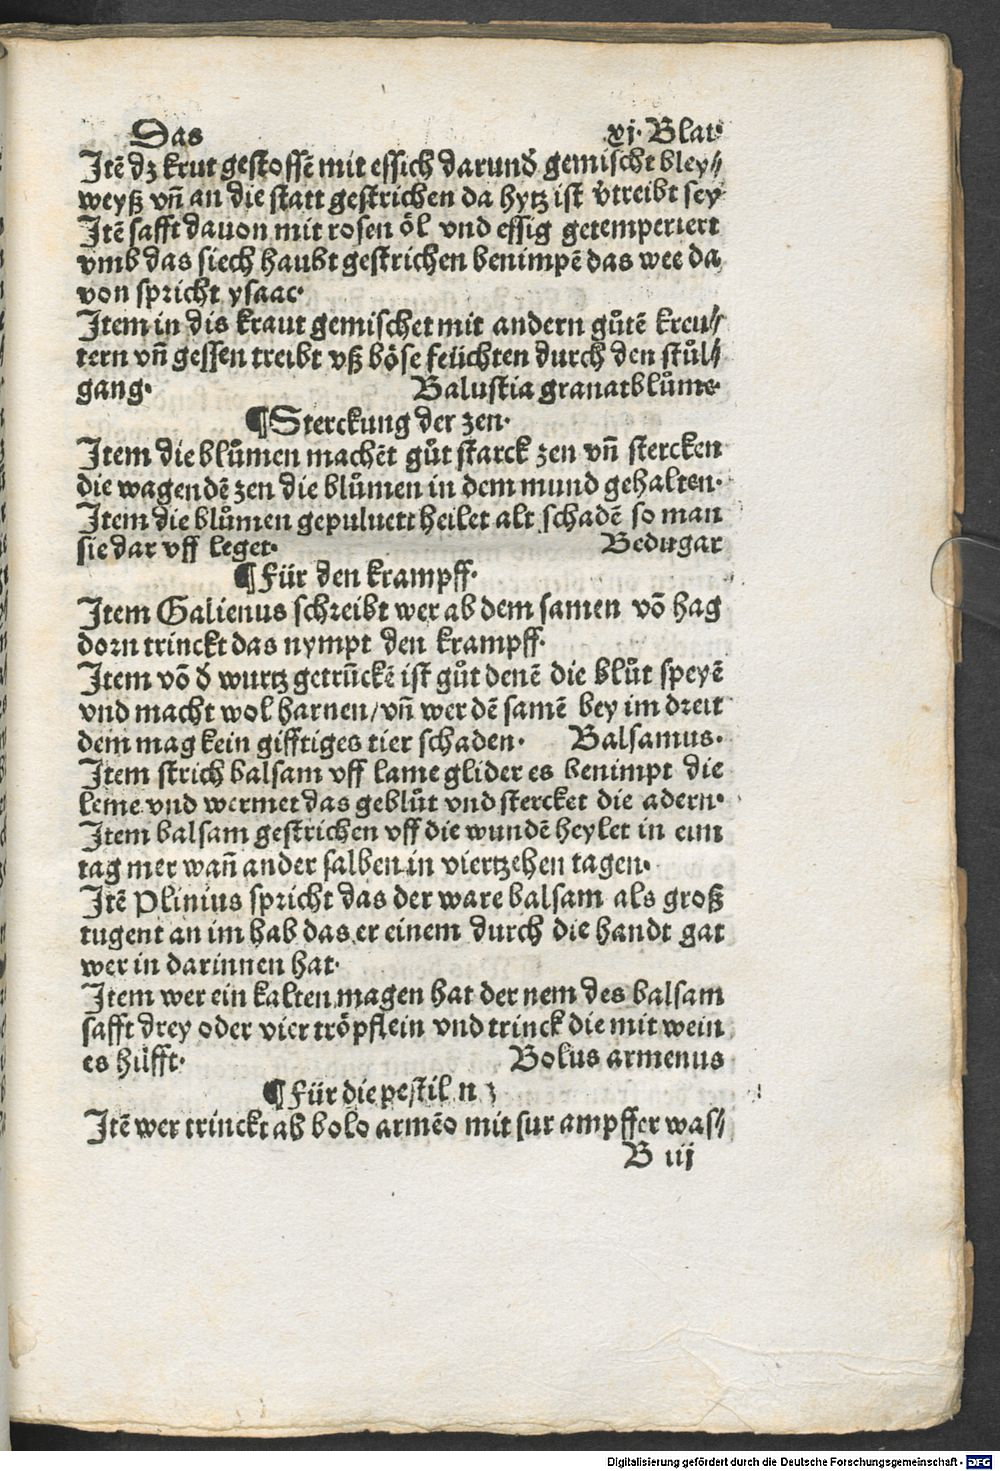 Das xj. Blat.
Jtē dz krut gestossē mit essich darunđ gemischt bley⸗
weyß vñ an die statt gestrichen da hytz ist v̄treibt sey
Jtē safft dauon mit rosen öl vnd essig getemperiert
vmb das siech haubt gestrichen benimpē das wee da
von spricht ysaac.
Jtem in dis kraut gemischet mit andern gůtē kreu⸗
tern vñ gessen treibt vß böse feüchten durch den stůl⸗
gang. Balustia granatblůme.
¶Sterckung der zen.
Jtem die blůmen machēt gůt starck zen vñ stercken
die wagendē zen die blůmen in dem mund gehalten.
Jtem die blůmen gepuluert heilet alt schadē so man
sie dar vff leget. Bedugar
¶Für den krampff.
Jtem Galienus schreibt wer ab dem samen vō hag
dorn trinckt das nympt den krampff.
Jtem vō đ wurtz getrūckē ist gůt denē die blůt speyē
vnd macht wol harnen/vñ wer dē samē bey im dreit
dem mag kein gifftiges tier schaden. Balsamus.
Jtem strich balsam vff lame glider es benimpt die
leme vnd wermet das geblůt vnd stercket die adern.
Jtem balsam gestrichen vff die wundē heylet in eim
tag mer wañ ander salben in viertzehen tagen.
Jtē Plinius spricht das der ware balsam als groß
tugent an im hab das er einem durch die handt gat
wer in darinnen hat.
Jtem wer ein kalten magen hat der nem des balsam
safft drey oder vier tröpflein vnd trinck die mit wein
es hilfft. Bolus armenus
¶Für die pestil n z
Jtē wer trinckt ab bolo armēo mit sur ampffer was⸗
B iij
Digitalisierung gefördert durch die Deutsche Forschungsgemeinschaft - DFG